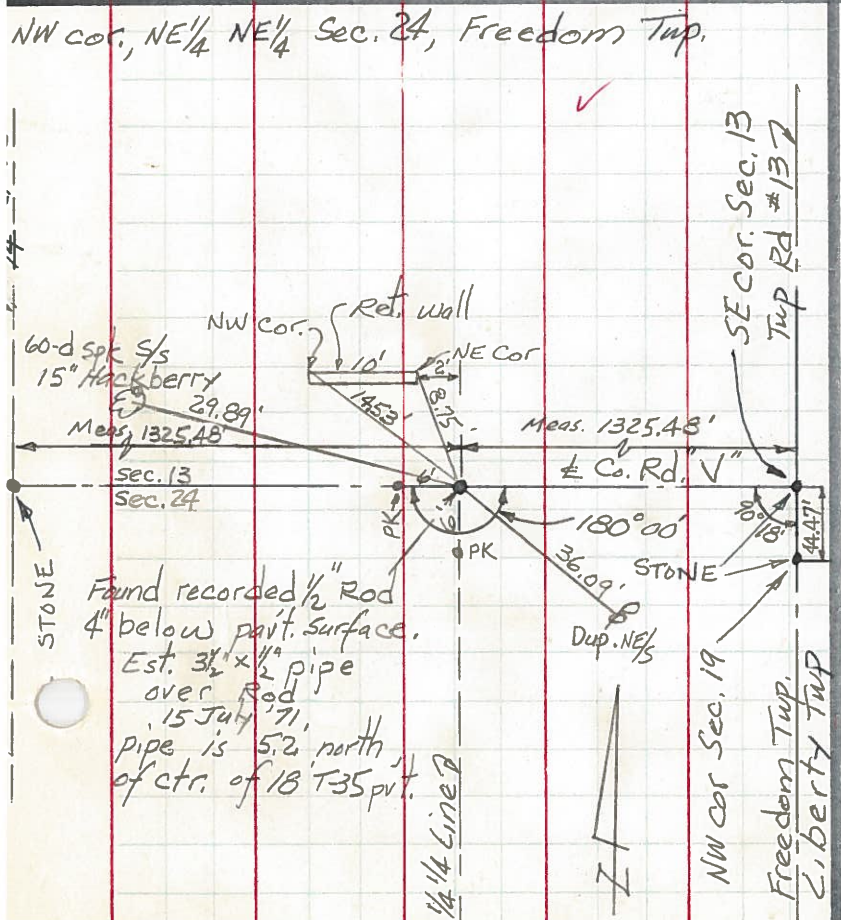 NW cor., NE¼ NE¼ Sec. 24, Freedom Twp.
SE cor. Sec. 13
Twp Rd #137
NW cor.
Ret. wall
10'
NE Cor
2'
60-d spk S/s
15" Hackberry
29.89'
14.53'
8.75'
Meas. 1325.48'
Meas. 1325.48'
℄ Co. Rd. "V"
Sec. 13
Sec. 24
6'
6'
PK
PK
180°00'
90°18'
44.47'
STONE
STONE
36.09'
Dup. NE/s
Found recorded ½" Rod
4" below pav't. surface.
Est. 3½" x ½" pipe
over Rod
15 July '71,
pipe is 5.2' north
of ctr. of 18' T-35 pv't.
¼ ¼ Line
NW cor Sec. 19
Freedom Twp.
Liberty Twp